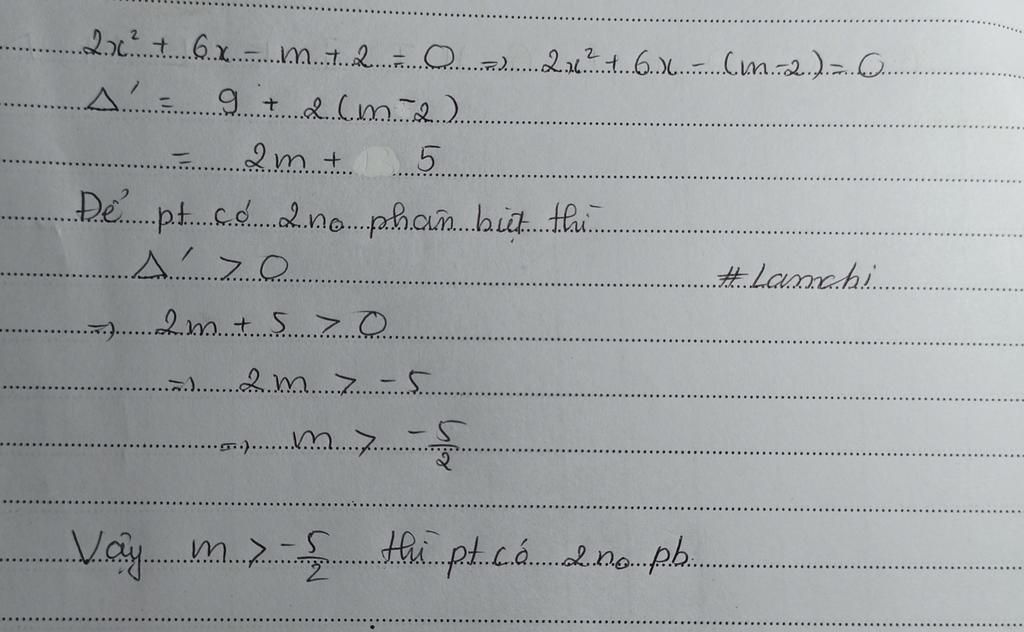 2x² + 6x - m + 2 = 0 => 2x² + 6x - (m-2) = 0
Δ' = 9 + 2(m-2)
= 2m + 5
Để pt có 2 no phân biệt thì
Δ' > 0
#Lamchi
=> 2m + 5 > 0
=> 2m > -5
=> m > -5/2
Vậy m > -5/2 thì pt có 2 no pb.